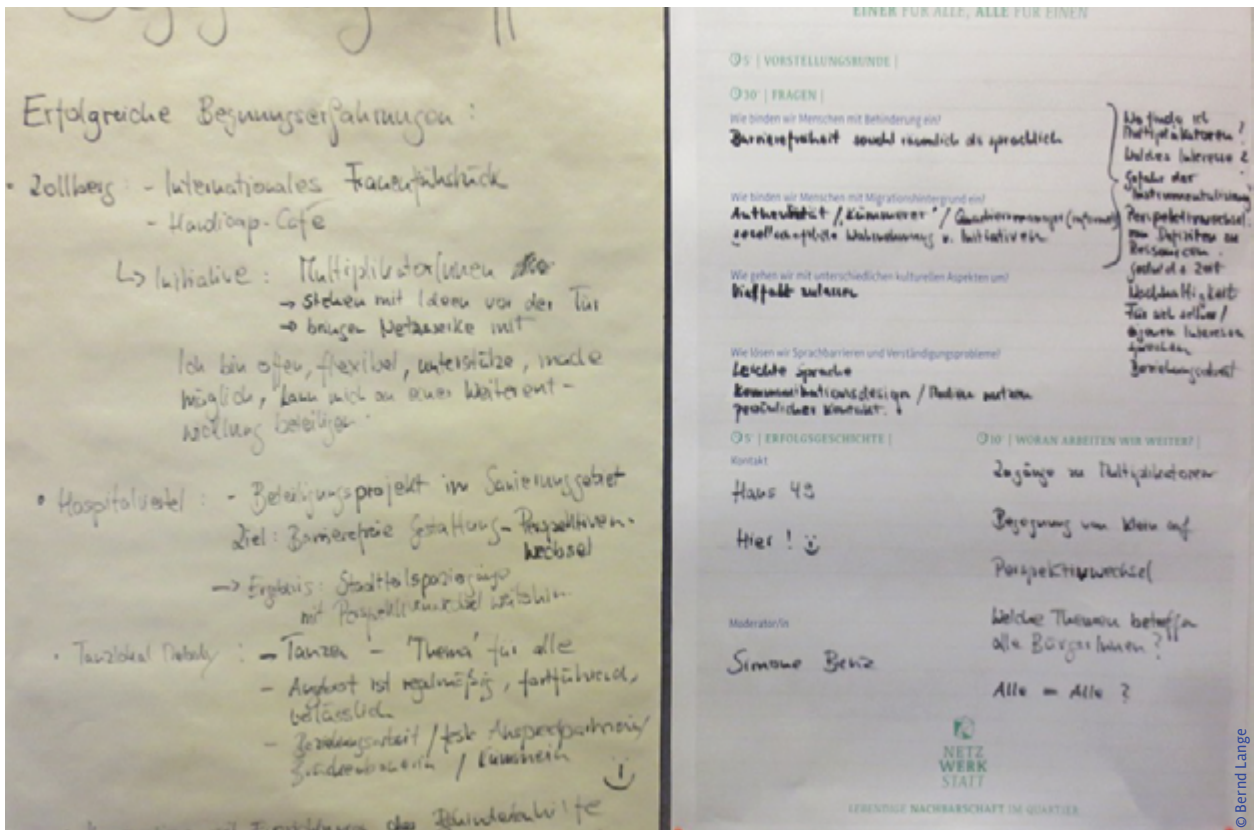 Erfolgreiche Begnungserfahrungen :
• Zollberg : - Internationales Frauenfrühstück
- Handicap-Café
↳ Initiative : MultiplikatorInnen
→ stehen mit Ideen vor der Tür
→ bringen Netzwerke mit
Ich bin offen, flexibel, unterstütze, mache
möglich, kann mich an einer Weiterent-
wicklung beteiligen.
• Hospitalviertel : - Beteiligungsprojekt im Sanierungsgebiet
Ziel : Barrierefreie Gestaltung - Perspektiven-
wechsel
→ Ergebnis : Stadtteilspaziergänge
mit Perspektivwechsel weiterhin
• Tanzlokal : - Tanzen - 'Thema' für alle
- Angebot ist regelmäßig, fortführend,
verlässlich
- Beziehungsarbeit / feste Ansprechpartnerin /
Brückenbauerin / Kümmrerin
der Behindertenhilfe
EINER FÜR ALLE, ALLE FÜR EINEN
5' | VORSTELLUNGSRUNDE |
30' | FRAGEN |
Wie binden wir Menschen mit Behinderung ein?
Barrierefreiheit sowohl räumlich als sprachlich
Wie binden wir Menschen mit Migrationshintergrund ein?
Authentizität / "Kümmerer" / Quartiersmanager (informell)
gesellschaftliche Wahrnehmung v. Initiativen
Wie gehen wir mit unterschiedlichen kulturellen Aspekten um?
Vielfalt zulassen
Wie lösen wir Sprachbarrieren und Verständigungsprobleme?
Leichte Sprache
Kommunikationsdesign / Medien nutzen
persönlicher Kontakt.
Wo finde ich
Multiplikatoren?
Welches Interesse?
Gefahr der
Instrumentalisierung
Perspektivwechsel:
von Defiziten zu
Ressourcen.
Geduld & Zeit
Nachhaltigkeit
Für sich selbst /
eigenen Interessen
sprechen
Beziehungsarbeit
5' | ERFOLGSGESCHICHTE |
Kontakt
Haus 49
Hier !
Moderator/in
Simone Benz
10' | WORAN ARBEITEN WIR WEITER? |
Zugänge zu Multiplikatoren
Begegnung von klein auf
Perspektivwechsel
Welche Themen betreffen
alle BürgerInnen?
Alle = Alle ?
NETZ
WERK
STATT
LEBENDIGE NACHBARSCHAFT IM QUARTIER
© Bernd Lange